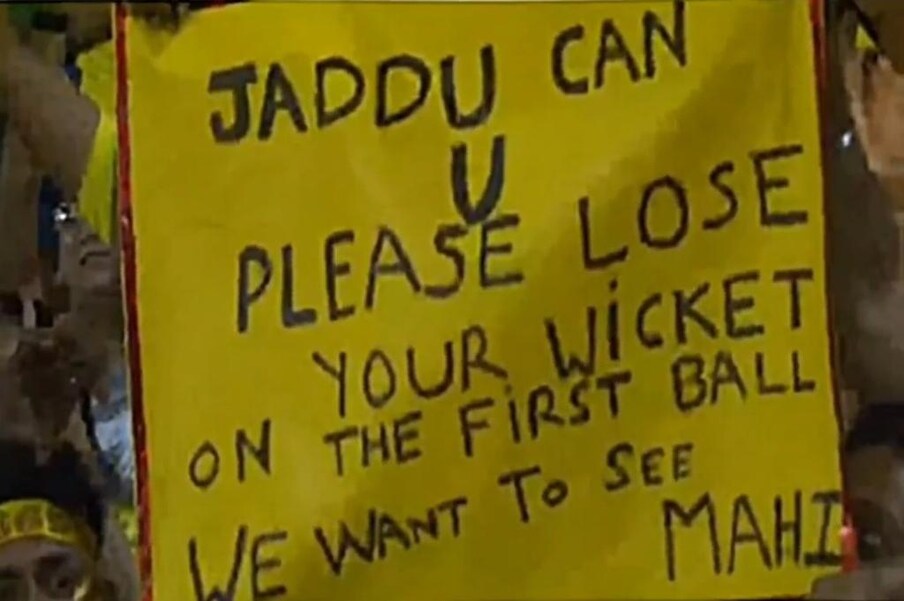 JADDU CAN
U
PLEASE LOSE
YOUR WiCKET
ON THE FiRST BALL
WE WANT To SEE
MAHI